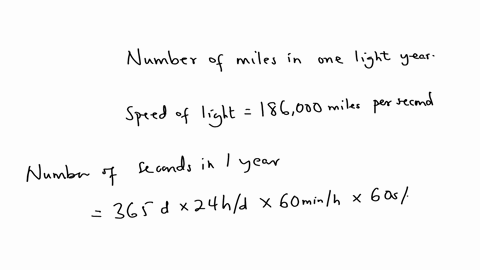 Number of miles in one light year.
Speed of light = 186,000 miles per second
Number of seconds in 1 year
= 365 d × 24h/d × 60min/h × 60s/